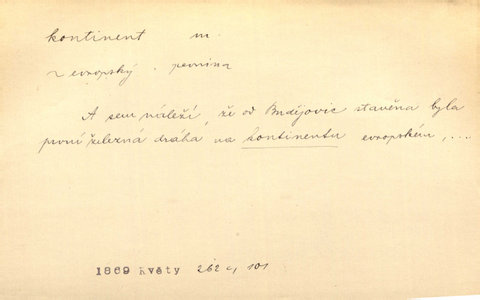 kontinent m.
~ evropský . pevnina
A sem náleží, že od Budějovic stavěna byla
první železná dráha na kontinentu evropském, ...
1869 Květy 262 c, 101